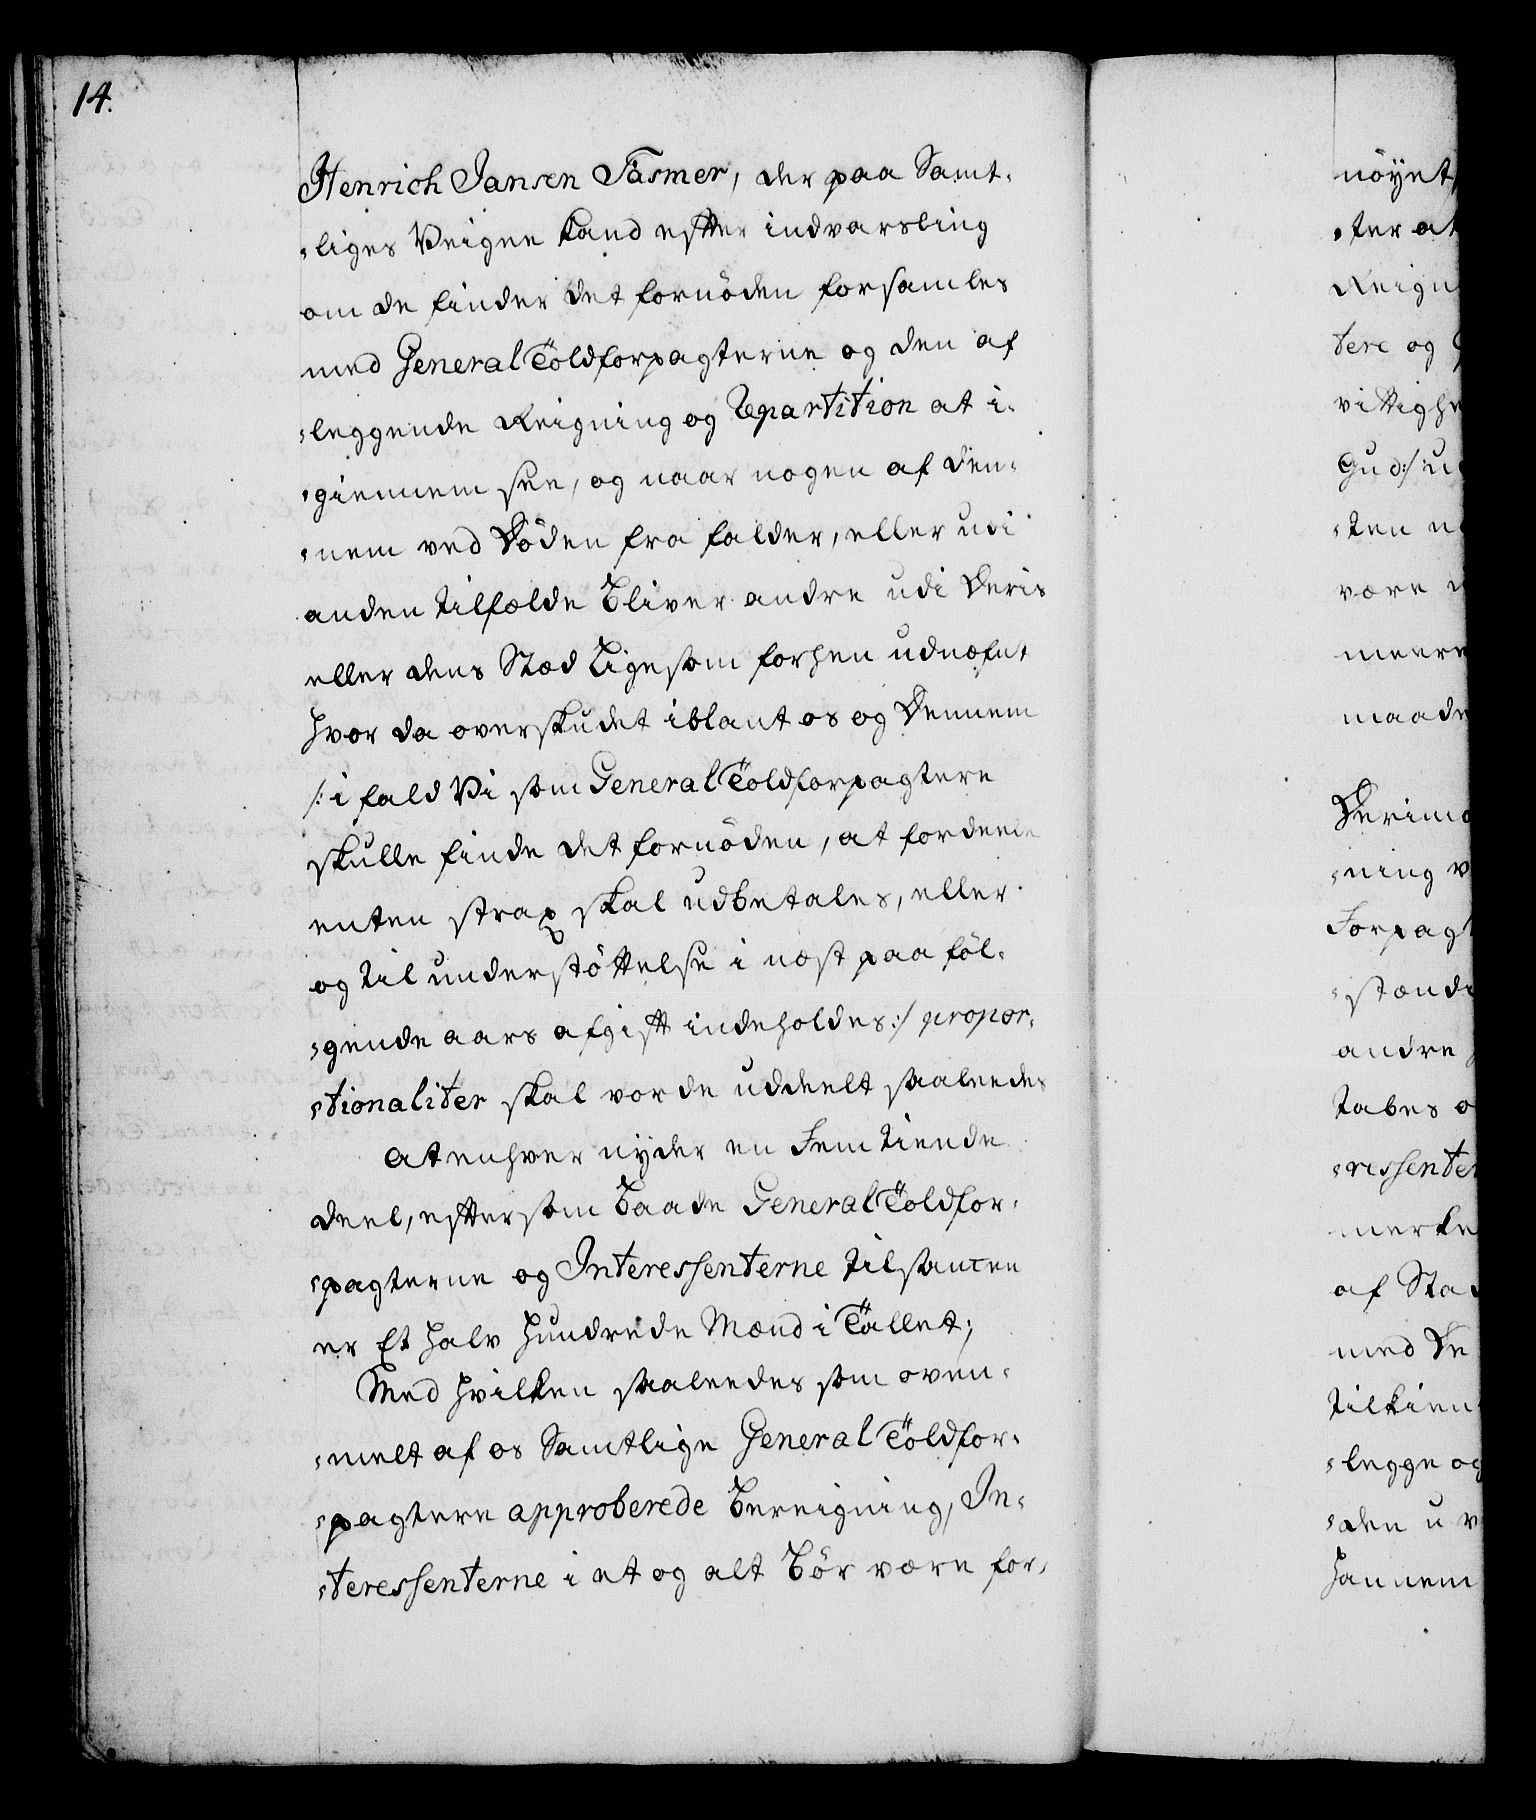 14.
Henrich Jansen Fasmer, der paa Samt-
-liges Veigne kand efter indvarsling
om de finder det fornöden forsamles
med General Toldforpagterne og den af
-leggende Reigning og Repartition at i-
-giennem see, og naar nogen af den-
-nem ved Döden fra falder, eller udi
anden tilfælde bliver andre udi deris
eller dens Stæd ligesom forhen udnæfnt
hvor da overskudet iblant os og Dennem
/: i fald Vi som General Toldforpagtere
skulle finde det fornöden, at fordeele
enten strax skal udbetales, eller
og til understöttelse i næst paa föl-
-gende aars afgift indeholdes :/ propor-
-tionaliter skal vorde uddeelt saaleedes
At enhver nyder en Femtiende
deel, eftersom baade General Toldfor-
-pagterne og Interessenterne tilsamen
er Et halv hundrede Mænd i Tallet;
Med hvilken saaleedes som oven-
-melt af os Samtlige General Toldfor-
-pagtere approberede bereigning, In-
-teressenterne i et og alt bör være for-
nöyet
-ter at
Reign
tere og
vittighe
Gud :/: u
-ten
være
meere
maade
Derimo
-ning v
Forpagt
-stændi
andre
tabes o
-ressenter
merke
af Sta
med De
tilkien
-legge og
-den u v
hannem